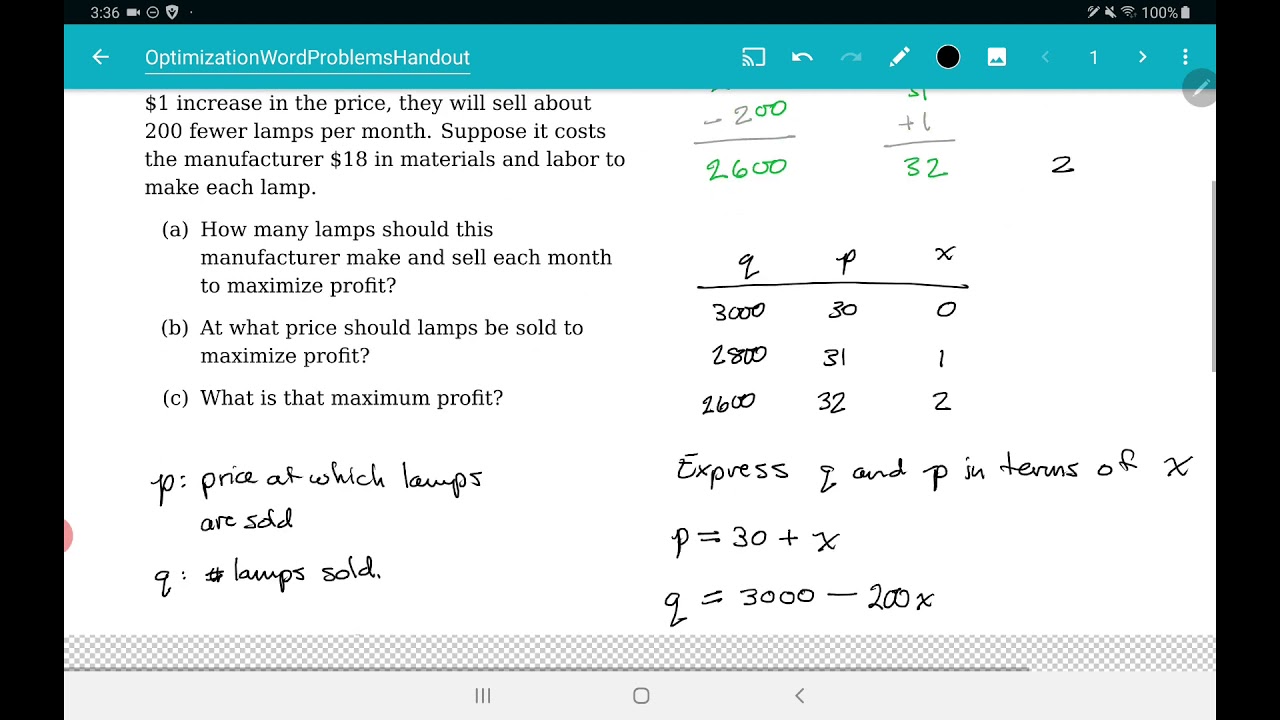 3:36
100%
OptimizationWordProblemsHandout
1
$1 increase in the price, they will sell about
200 fewer lamps per month. Suppose it costs
the manufacturer $18 in materials and labor to
make each lamp.
(a) How many lamps should this
manufacturer make and sell each month
to maximize profit?
(b) At what price should lamps be sold to
maximize profit?
(c) What is that maximum profit?
p: price at which lamps
are sold
q: # lamps sold.
31
- 200 +1
2600 32 2
q p x
3000 30 0
2800 31 1
2600 32 2
Express q and p in terms of x
p = 30 + x
q = 3000 — 200x